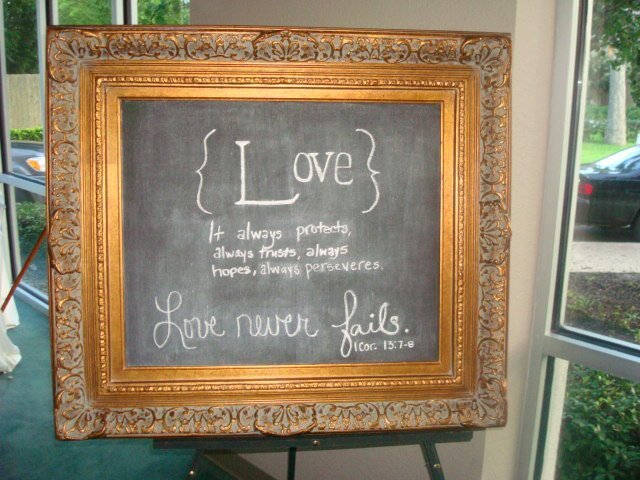 { Love }
It always protects,
always trusts, always
hopes, always perseveres.
Love never fails.
1 Cor. 13:7-8